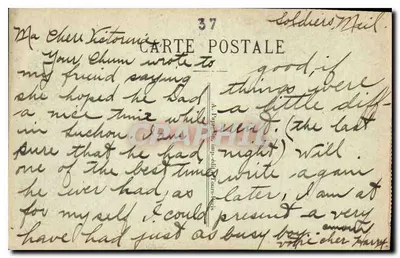 37
Soldiers Mail.
CARTE POSTALE
Ma Chere Victorine
Your Chum wrote to
my friend saying
she hoped he had
a nice time while
in Luchon. I am
sure that he had
one of the best times
he ever had, as
for my self, I could
have had just as
good, if
things were
a little diff-
erent. (the last
night) Will
write again
later, I am at
present a very
busy boy.
votre cher Harry